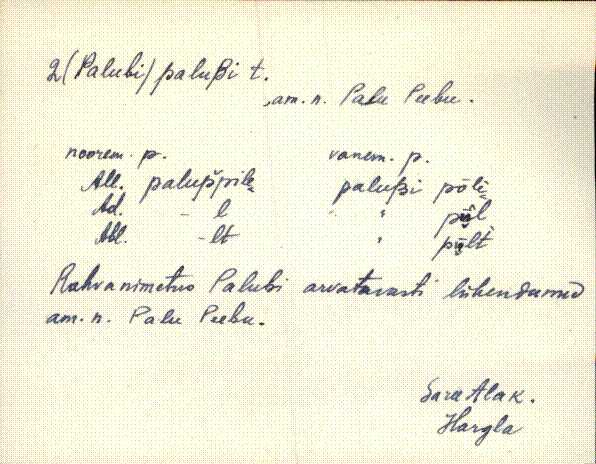 2 (Palubi) paluβi t.
am. n. Palu Peebu.
noorem. p. vanem. p.
All. palušpile paluβi põle
Ad. - l " põl
Abl. - lt " põlt
Rahvanimetus Palubi arvatavasti lühendunud
am. n. Palu Peebu.
Sara Alak.
Hargla